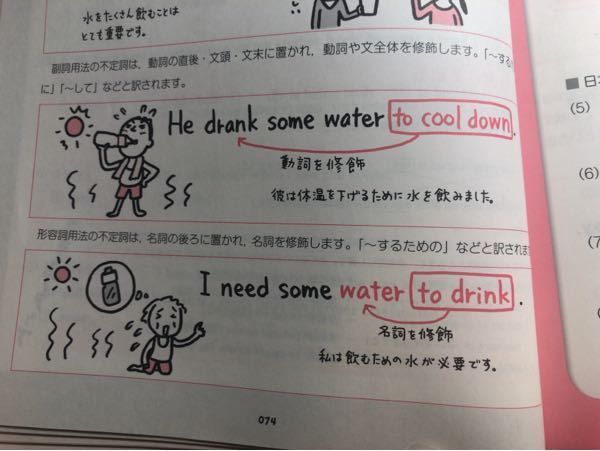 水をたくさん飲むことは
とても重要です。
副詞用法の不定詞は、動詞の直後・文頭・文末に置かれ、動詞や文全体を修飾します。「〜する
に」「〜して」などと訳されます。
He drank some water to cool down.
動詞を修飾
彼は体温を下げるために水を飲みました。
形容詞用法の不定詞は、名詞の後ろに置かれ、名詞を修飾します。「〜するための」などと訳されま
I need some water to drink.
名詞を修飾
私は飲むための水が必要です。
074
■日
(5)
(6)
(7